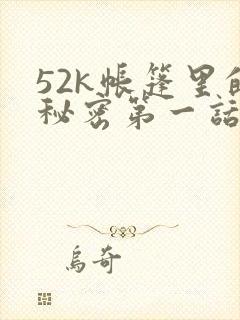 52k帳篷里的
秘密第一話
烏奇